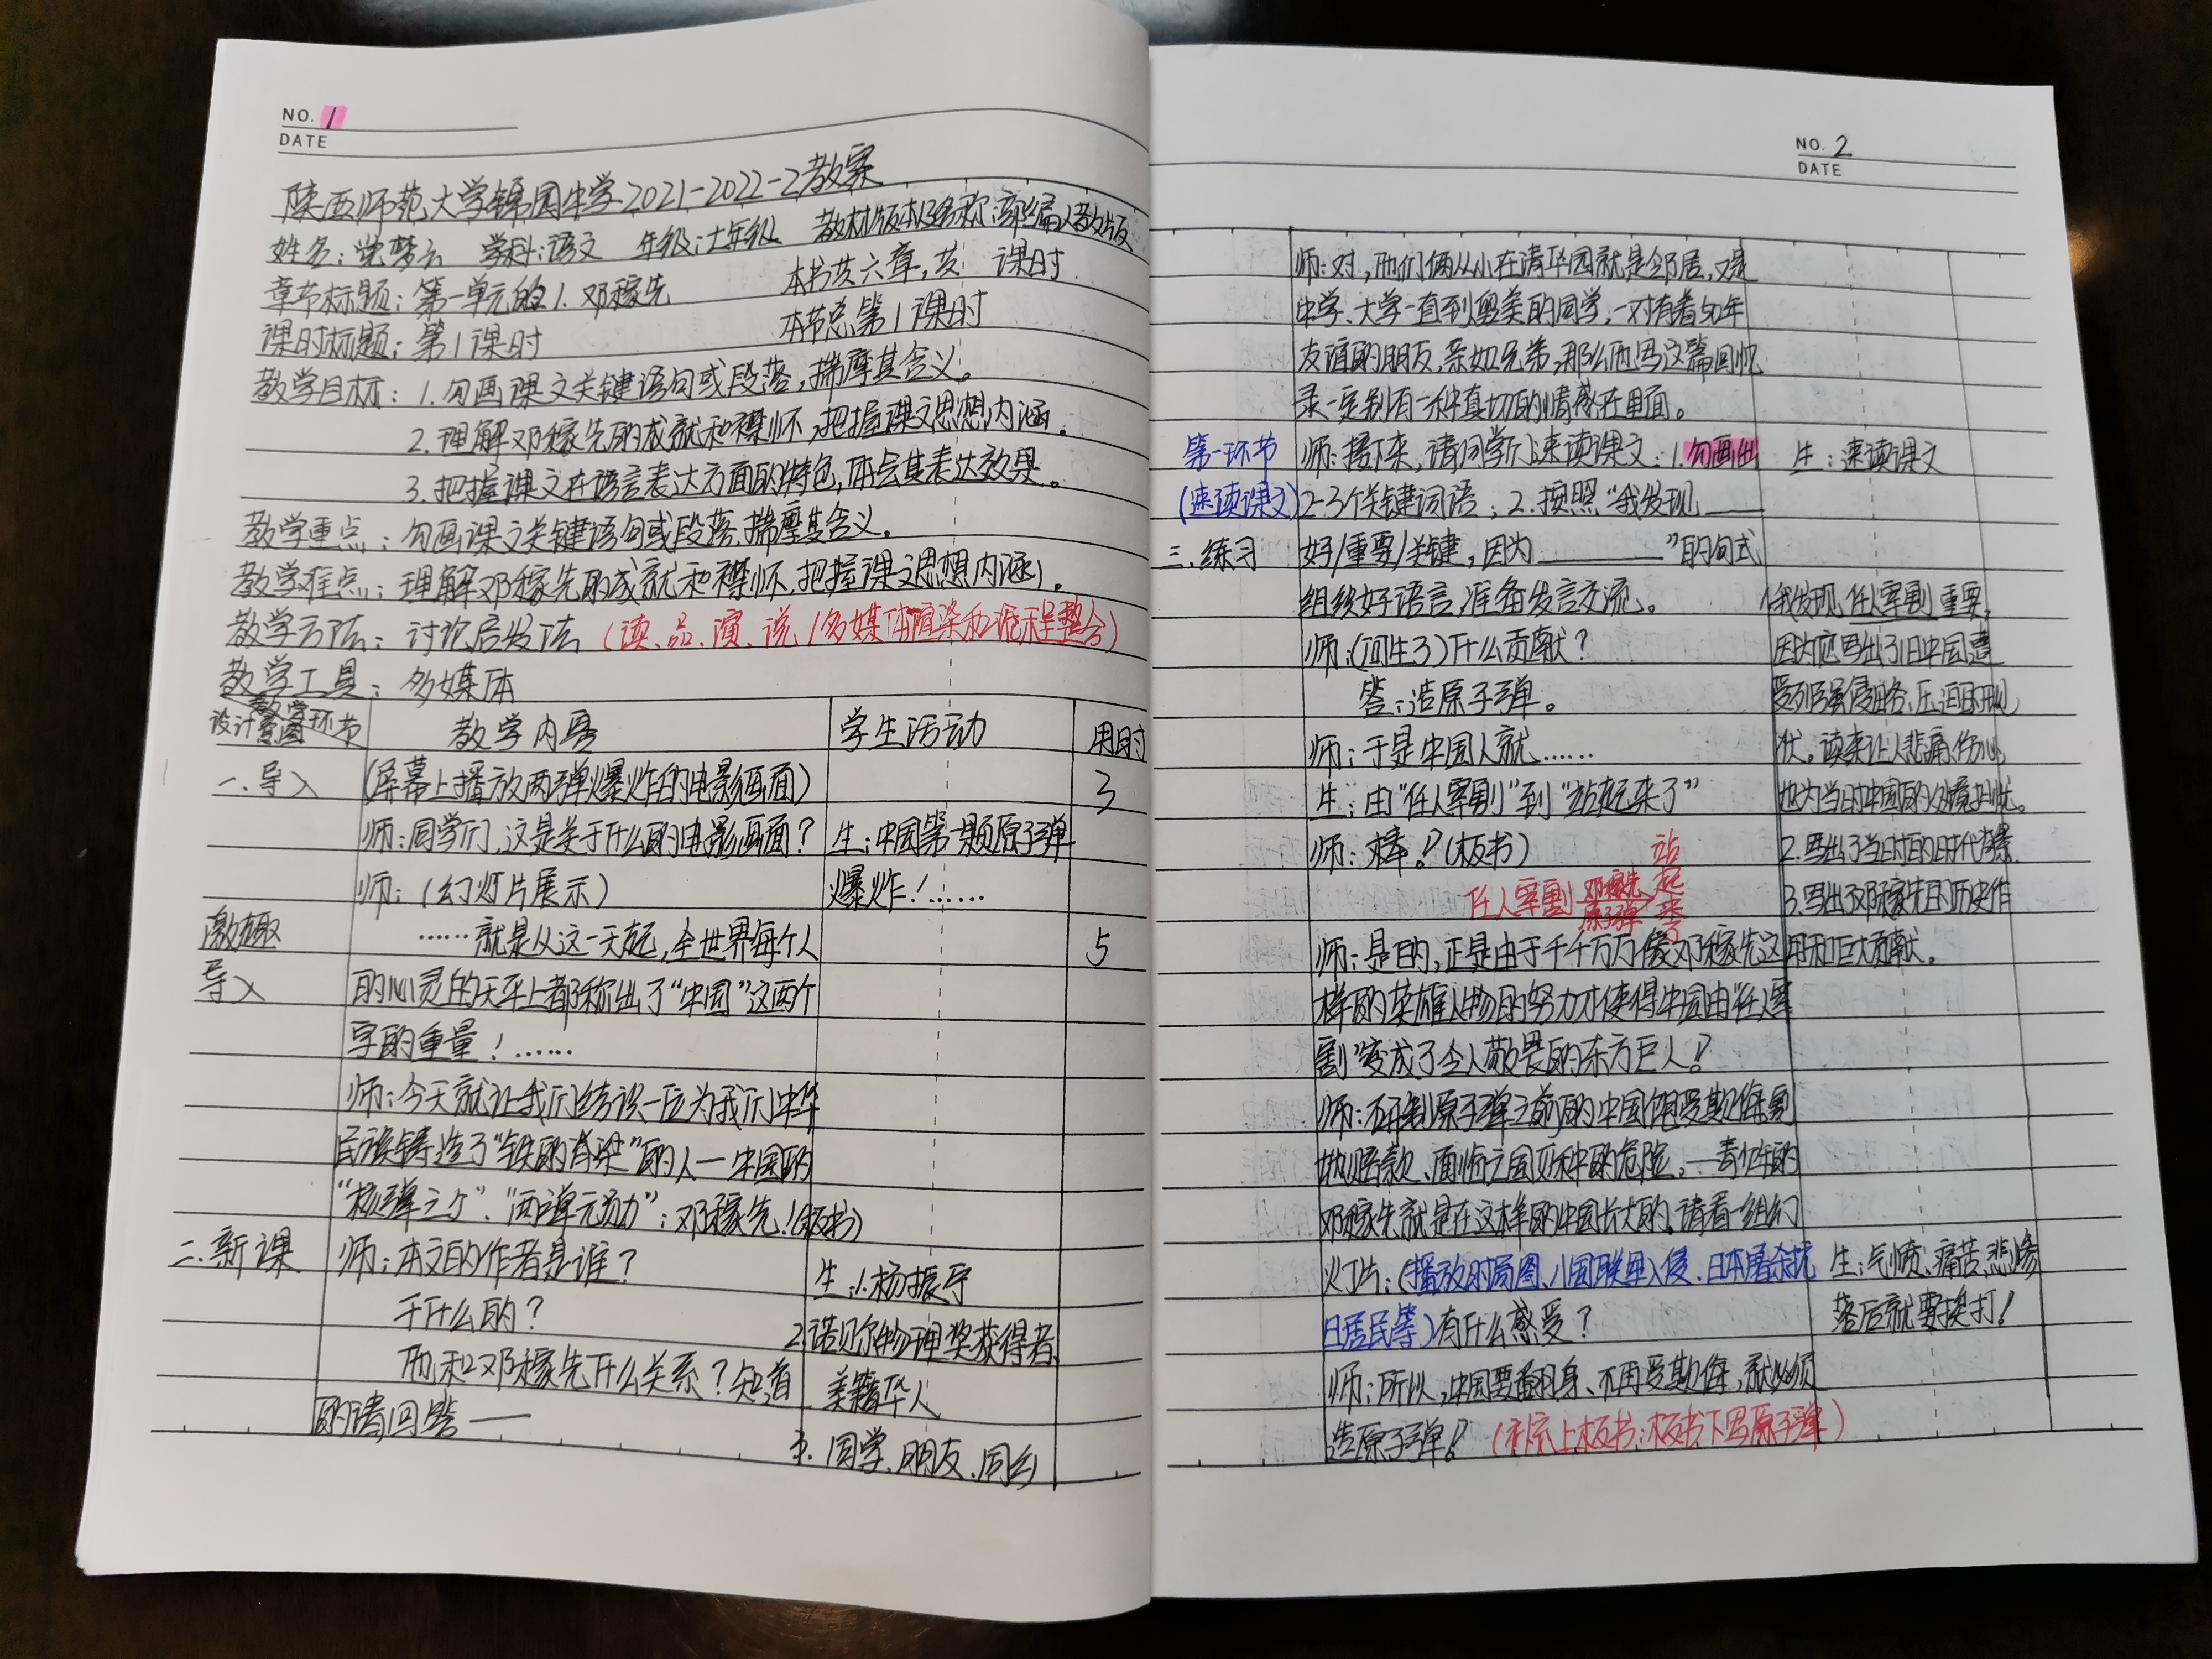 NO. 1
DATE
陕西师范大学锦园中学2021-2022-2教案
姓名：党梦云 学科：语文 年级：七年级 教材版本及名称：部编人教版
章节标题：第一单元的1.邓稼先 本书共六章，共 课时
课时标题：第1课时 本节总第1课时
教学目标：1.勾画课文关键语句或段落，揣摩其含义。
2.理解邓稼先的成就和襟怀，把握课文思想内涵。
3.把握课文在语言表达方面的特色，体会其表达效果。
教学重点：勾画课文关键语句或段落，揣摩其含义。
教学难点：理解邓稼先的成就和襟怀，把握课文思想内涵。
教学方法：讨论启发法（读、品、演、说/多媒体渲染和流程整合）
教学工具：多媒体
设计意图 教学环节 教学内容 学生活动 用时
一.导入 （屏幕上播放两弹爆炸的电影画面） 3
师：同学们，这是关于什么的电影画面？ 生：中国第一颗原子弹
师：（幻灯片展示） 爆炸！……
激趣 ……就是从这一天起，全世界每个人 5
导入 的心灵的天平上都称出了“中国”这两个
字的重量！……
师：今天就让我们结识一位为我们中华
民族铸造了“铁的脊梁”的人—中国的
“核弹之父”、“两弹元勋”：邓稼先！（板书）
二.新课 师：本文的作者是谁？ 生：1.杨振宁
干什么的？ 2.诺贝尔物理奖获得者
他和邓稼先什么关系？知道 美籍华人
的请回答—— 3.同学、朋友、同乡
NO. 2
DATE
师：对，他们俩从小在清华园就是邻居，又是
中学、大学一直到留美的同学，一对有着50年
友谊的朋友，亲如兄弟，那么他写这篇回忆
录一定别有一种真切的情感在里面。
第一环节 师：接下来，请同学们速读课文：1.勾画出 生：速读课文
（速读课文） 2-3个关键词语；2.按照“我发现____
三.练习 好/重要/关键，因为________”的句式
组织好语言，准备发言交流。 1我发现任人宰割重要，
师：（问生3）什么贡献？ 因为它写出了旧中国遭
答：造原子弹。 受列强侵略、压迫的现
师：于是中国人就…… 状。读来让人悲痛伤心，
生：由“任人宰割”到“站起来了” 也为当时中国的处境担忧。
师：棒！（板书） 2.写出了当时的时代背景
任人宰割 邓稼先 原子弹 站起来了 3.写出了邓稼先的历史作
师：是的，正是由于千千万万像邓稼先这 用和巨大贡献。
样的英雄人物的努力才使得中国由“任人宰
割”变成了令人敬畏的东方巨人！
师：研制原子弹之前的中国饱受欺侮割
地赔款、面临亡国灭种的危险，—青少年的
邓稼先就是在这样的中国长大的。请看一组幻
灯片：（播放时局图、八国联军入侵、日本屠杀抗 生：气愤、痛苦、悲惨
日居民等）有什么感受？ 落后就要挨打！
师：所以，中国要翻身、不再受欺侮，就必须
造原子弹！（补上板书：板书下写原子弹）